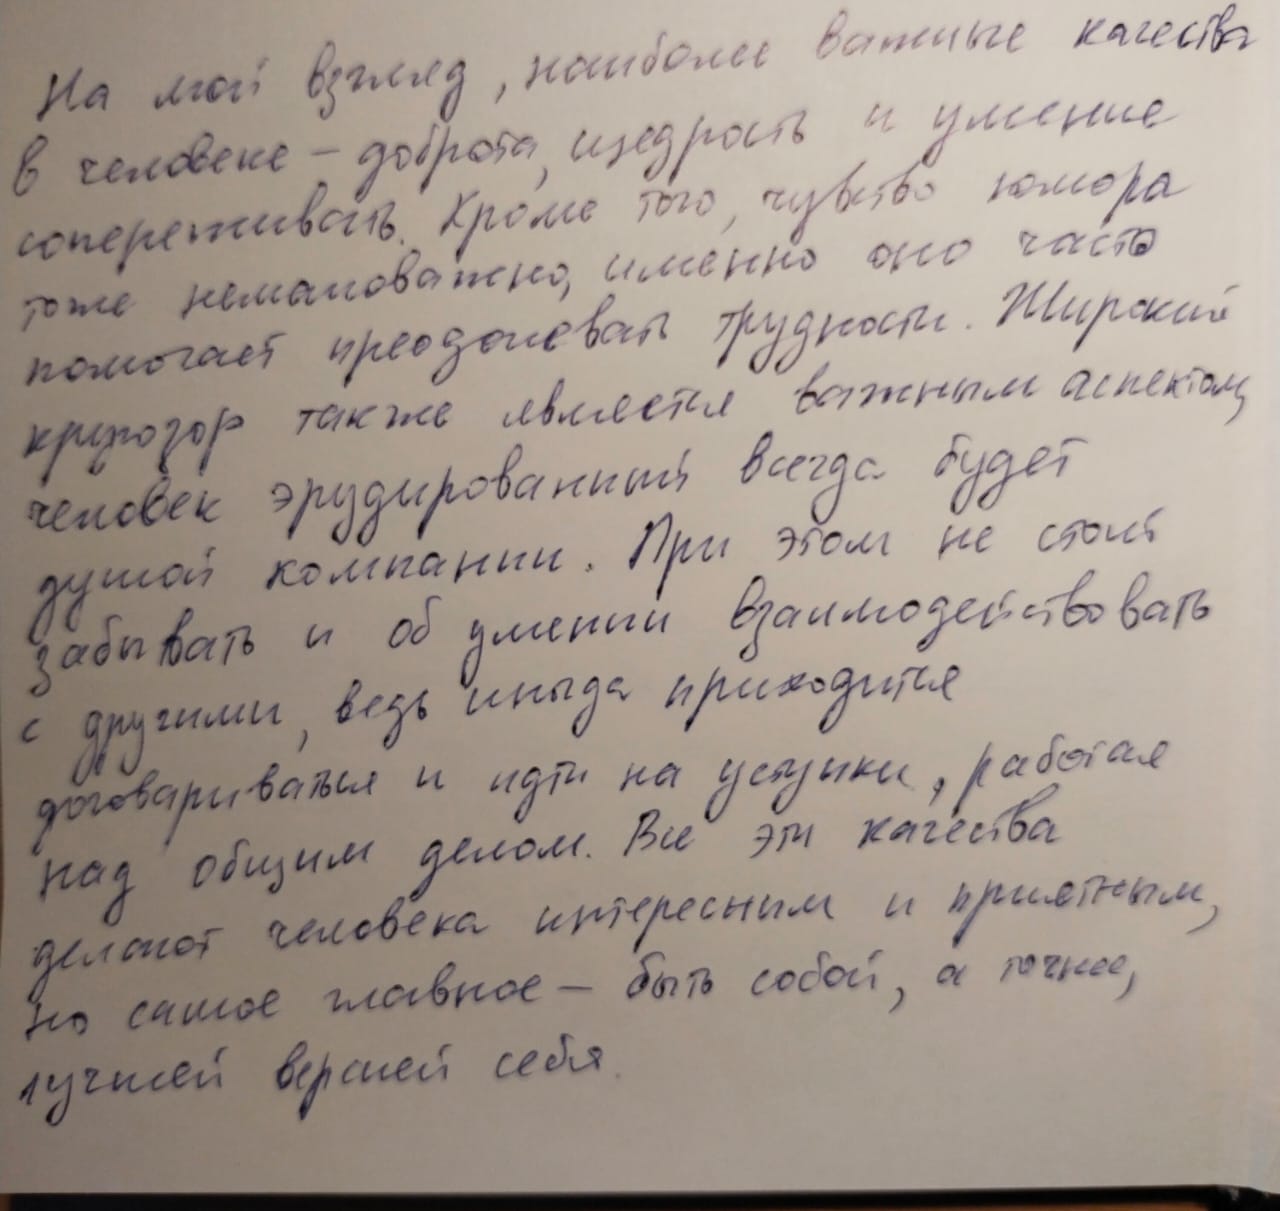 На мой взгляд, наиболее важные качества
в человеке – доброта, щедрость и умение
сопереживать. Кроме того, чувство юмора
тоже немаловажно, именно оно часто
помогает преодолевать трудности. Широкий
кругозор также является важным аспектом,
человек эрудированный всегда будет
душой компании. При этом не стоит
забывать и об умении взаимодействовать
с другими, ведь иногда приходится
договариваться и идти на уступки, работая
над общим делом. Все эти качества
делают человека интересным и приятным,
но самое главное – быть собой, а точнее,
лучшей версией себя.